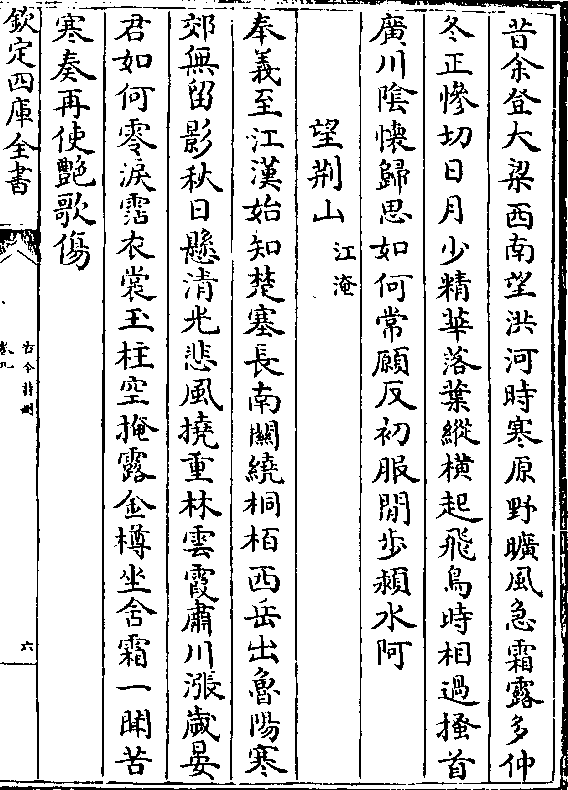 昔余登大梁西南望洪河時寒原野曠風急霜露多仲
冬正慘切日月少精華落葉縱横起飛鳥時相過搔首
廣川隂懐歸思如何常願反初服閒歩潁水阿
望荆山 江淹
奉義至江漢始知楚塞長南闗繞桐栢西岳出魯陽寒
郊無留影秋日懸清光悲風撓重林雲霞肅川漲歲晏
君如何零淚霑衣裳玉柱空掩露金樽坐含霜一聞苦
寒奏再使艷歌傷
欽定四庫全書
古今詩刪
卷九
六